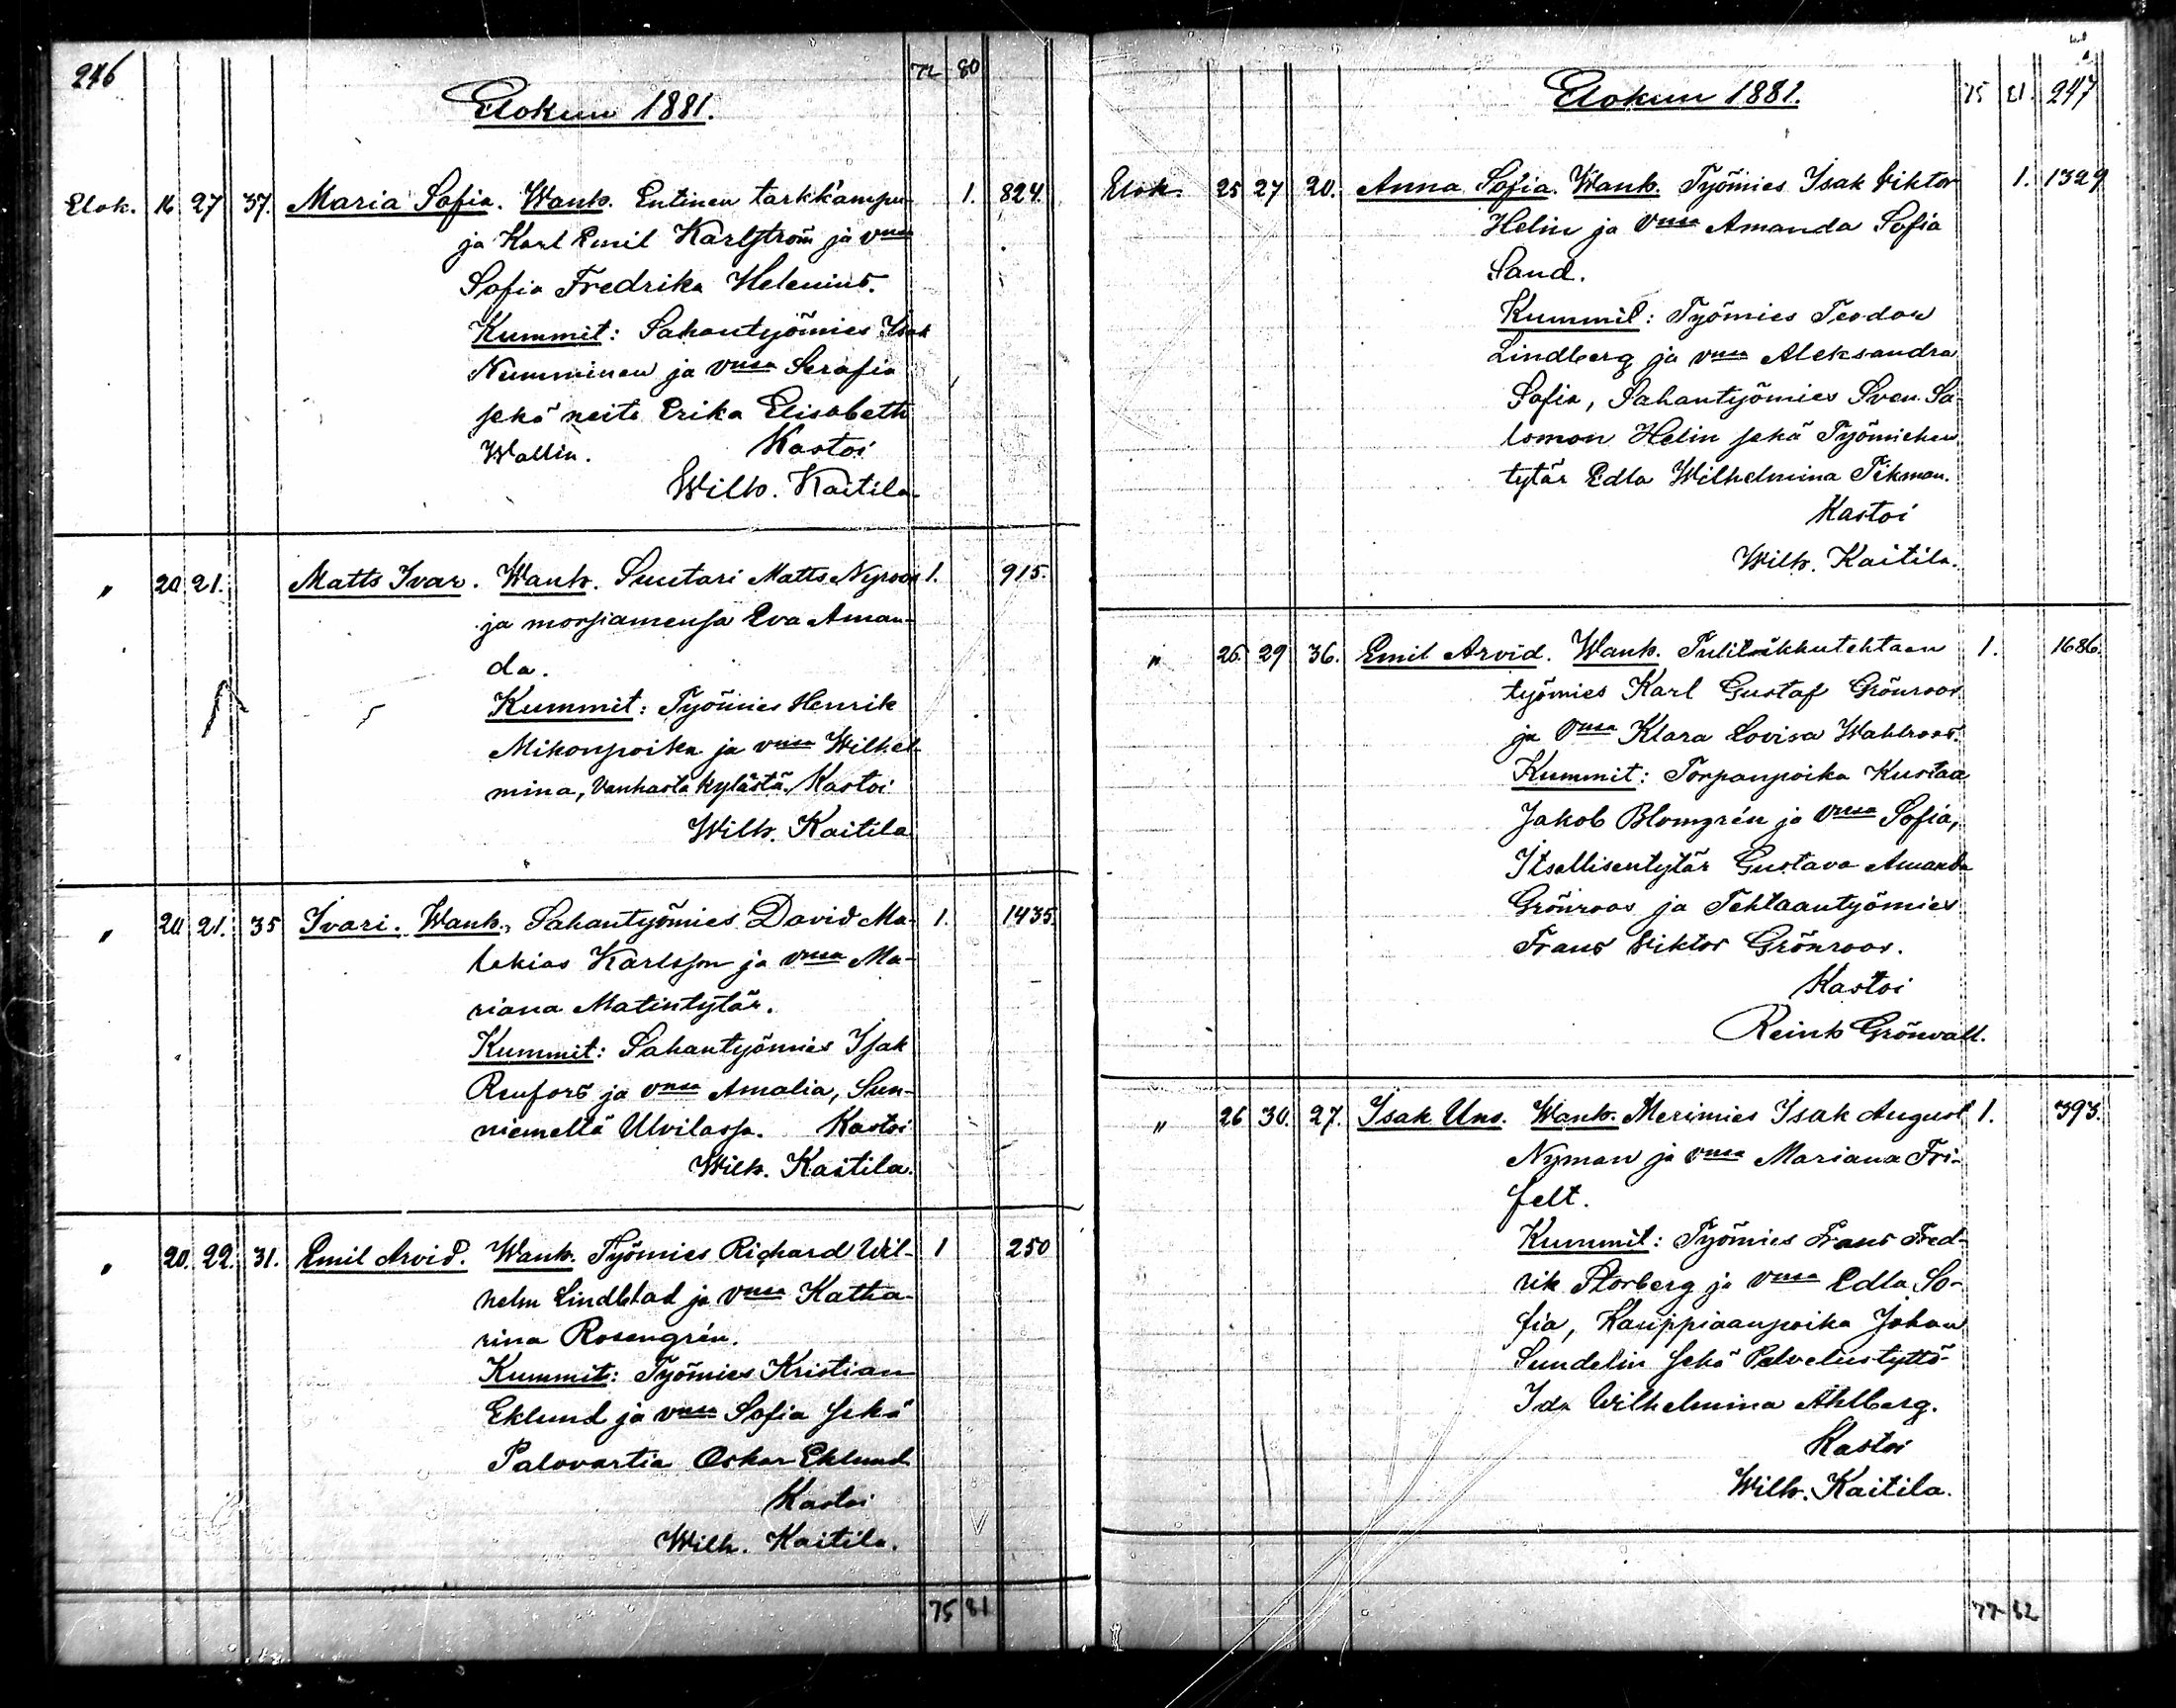 246
72 80
Elokuu 1881.
Elok. 16 27 37. Maria Sofia. Wanh. Entinen tarkk'ampu- 1. 824.
ja Karl Emil Karlström ja vmsa
Sofia Fredrika Helenius.
Kummit: Sahantyömies Isak
Numminen ja vmsa Serafia
sekä neito Erika Elisabeth
Wallin. Kastoi
Wilh. Kaitila.
" 20 21. Matts Ivar. Wanh. Suutari Matts Nyroos 1. 915.
ja morsiamensa Eva Aman-
da.
Kummit: Työmies Henrik
Mikonpoika ja vmsa Wilhel-
mina, Vanhasta kylästä. Kastoi
Wilh. Kaitila
" 20 21. 35 Ivari. Wanh. Sahantyömies David Ma- 1. 1435.
lakias Karlsson ja vmsa Ma-
riana Matintytär.
Kummit: Sahantyömies Isak
Renfors ja vmsa Amalia, Sun-
niemeltä Ulvilassa. Kastoi
Wilh. Kaitila.
" 20. 22. 31. Emil Arvid. Wanh. Työmies Richard Wil- 1 250
helm Lindblad ja vmsa Katha-
rina Rosengrén.
Kummit: Työmies Kristian
Eklund ja vmsa Sofia sekä
Palovartia Oskar Eklund
Kastoi
Wilh. Kaitila.
75 81
Elokuu 1881.
75 81. 247
Elok. 25 27 20. Anna Sofia. Wanh. Työmies Isak Viktor 1. 1329
Helin ja vmsa Amanda Sofia
Sand.
Kummit: Työmies Teodor
Lindberg ja vmsa Aleksandra
Sofia, Sahantyömies Sven Sa-
lomon Helin sekä Työmiehen
tytär Edla Wilhelmina Tikman.
Kastoi
Wilh. Kaitila.
" 26. 29 36. Emil Arvid. Wanh. Tulitikkutehtaan 1. 1686.
työmies Karl Gustaf Grönroos
ja vmsa Klara Lovisa Wahlroos.
Kummit: Torpanpoika Kustaa
Jakob Blomgrén ja vmsa Sofia,
Itsellisentytär Gustava Amanda
Grönroos ja Tehtaantyömies
Frans Viktor Grönroos.
Kastoi
Reinh Grönvall.
" 26 30. 27. Isak Uno. Wanh. Merimies Isak August 1. 393.
Nyman ja vmsa Mariana Fri-
felt.
Kummit: Työmies Frans Fred-
rik Storberg ja vmsa Edla So-
fia, Kauppiaanpoika Johan
Sundelin sekä Palvelustyttö
Ida Wilhelmina Ahlberg.
Kastoi
Wilh. Kaitila.
77 82